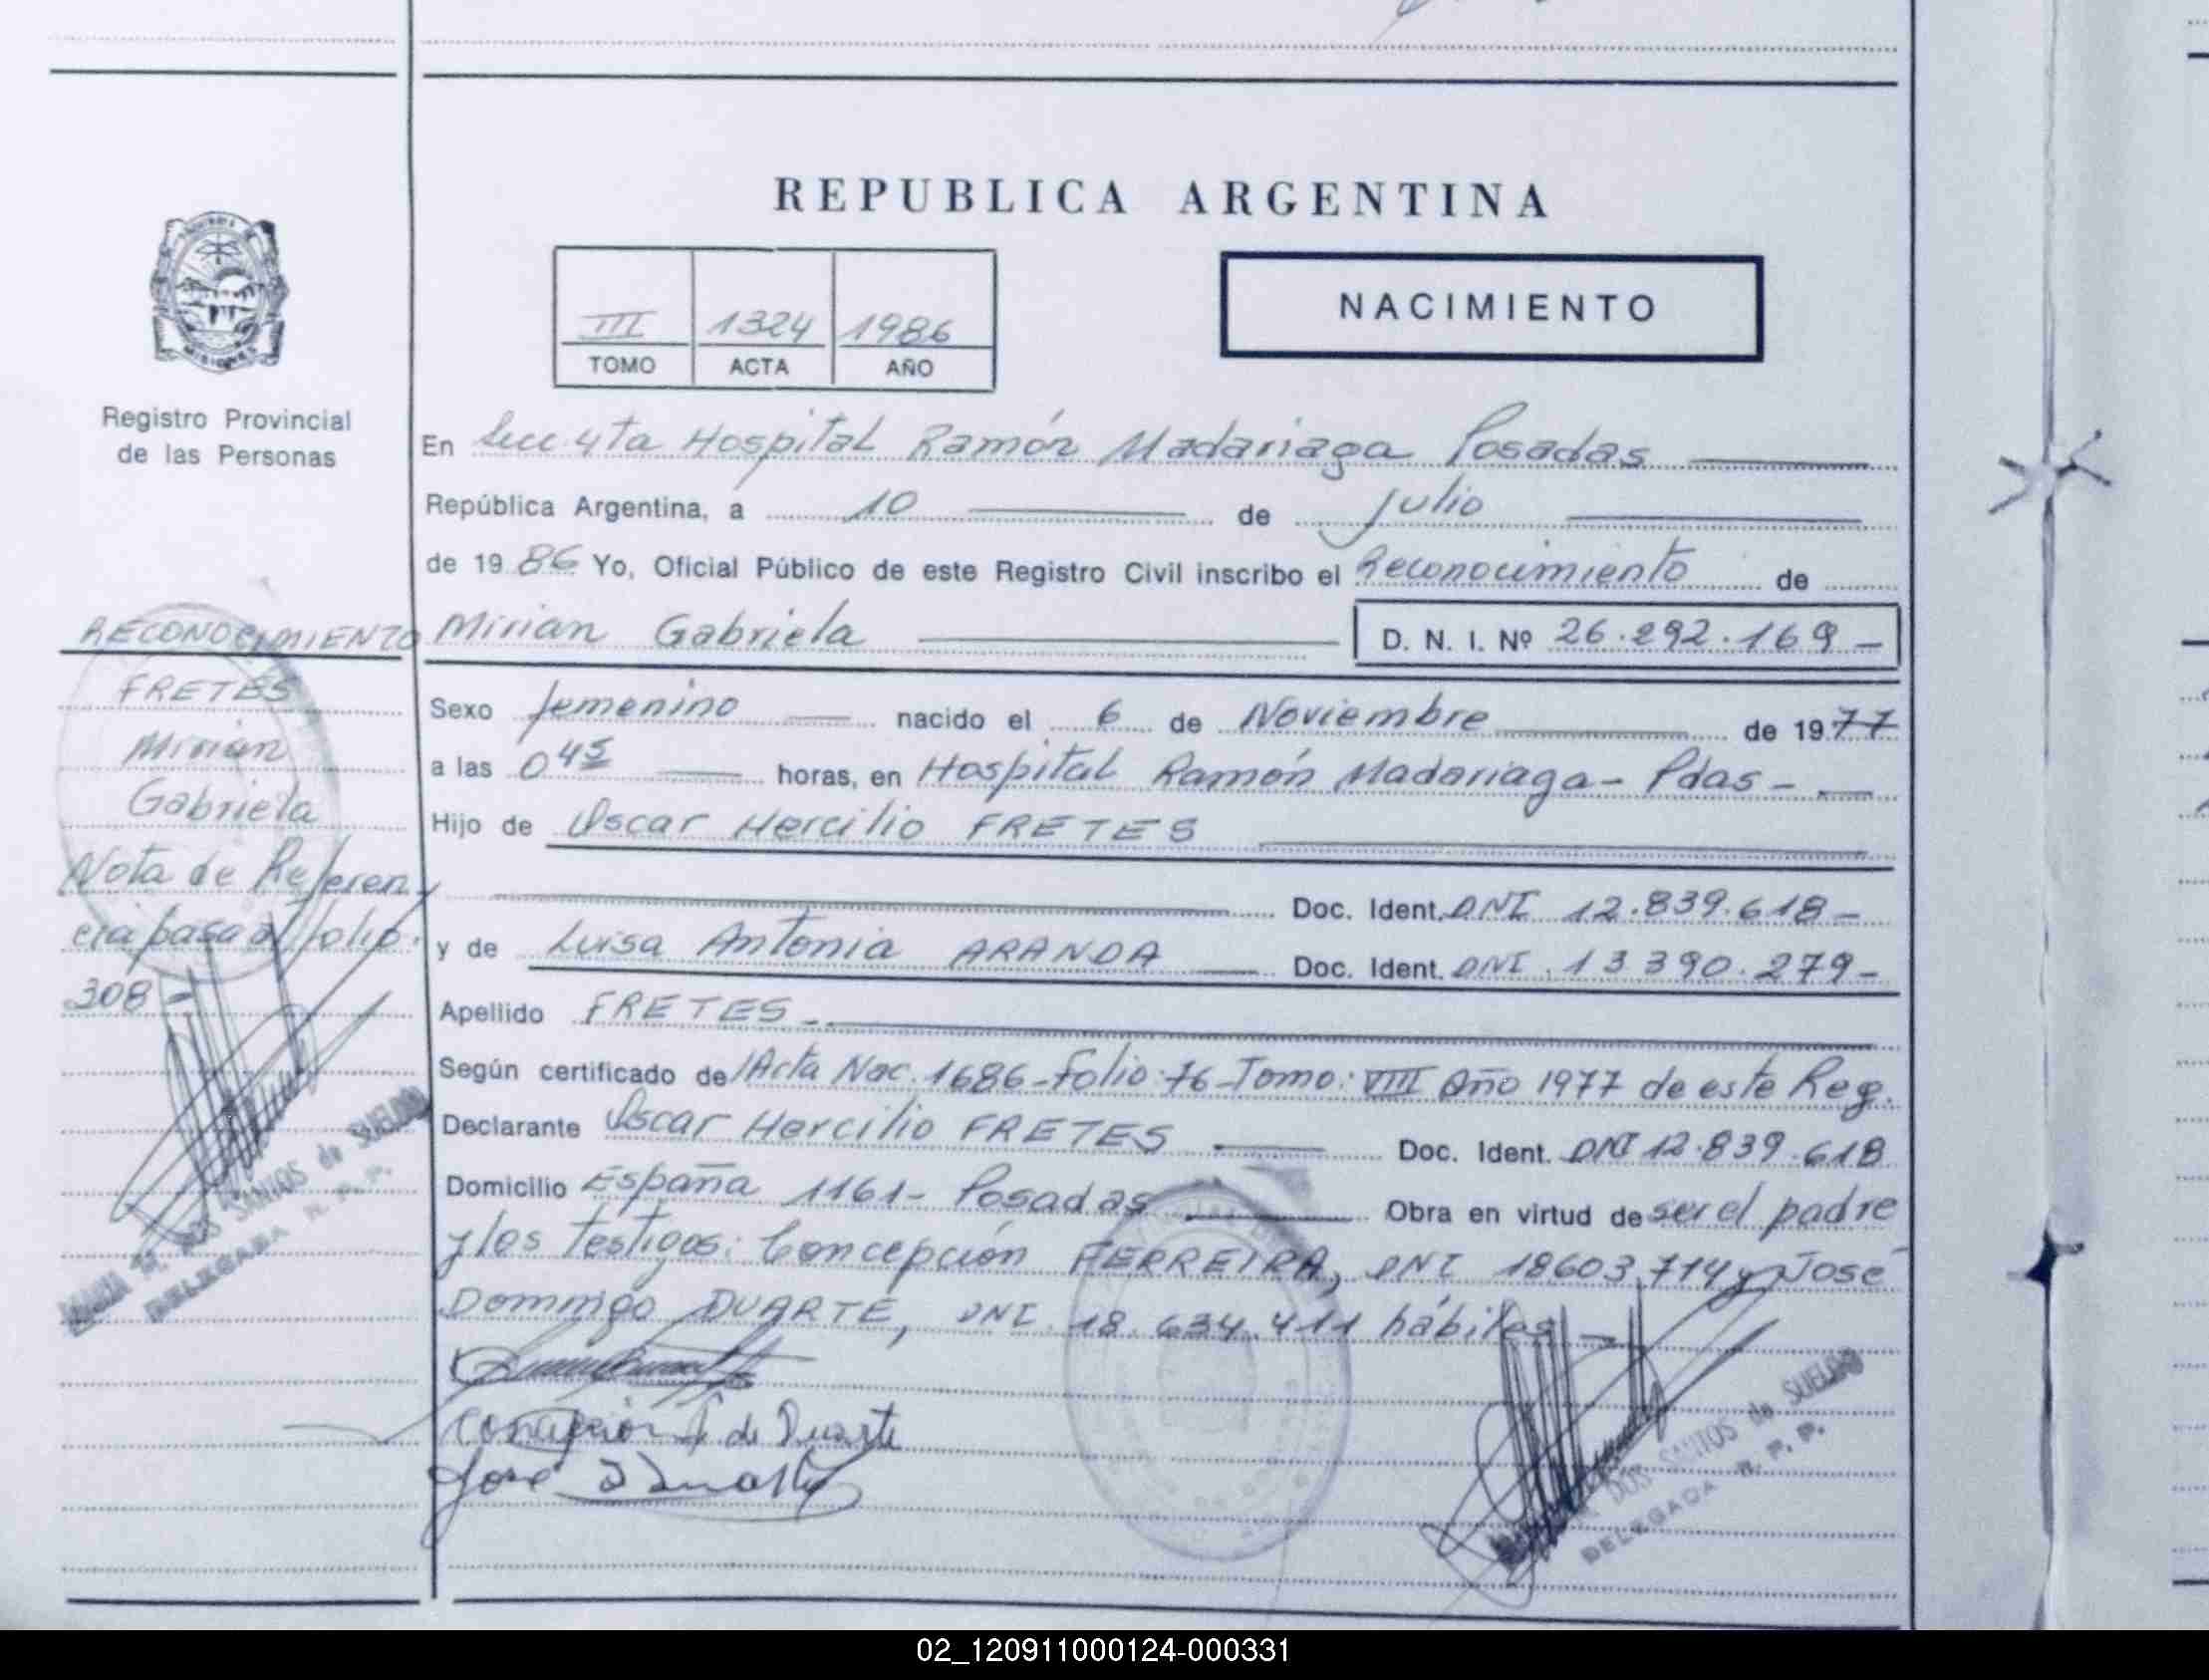 REPUBLICA ARGENTINA
III 1324 1986
TOMO ACTA AÑO
NACIMIENTO
MISIONES
Registro Provincial
de las Personas
En Secc 4ta Hospital Ramón Madariaga Posadas
República Argentina, a 10 de Julio
de 19 86 Yo, Oficial Público de este Registro Civil inscribo el Reconocimiento de
Mirian Gabriela D. N. I. Nº 26.292.169-
Sexo femenino nacido el 6 de Noviembre de 1977
a las 045 horas, en Hospital Ramón Madariaga- Pdas-
Hijo de Oscar Hercilio FRETES
Doc. Ident. DNI 12.839.618-
y de Luisa Antonia ARANDA Doc. Ident. DNI. 13 390.279-
Apellido FRETES-
Según certificado de Acta Nac. 1686-Folio:76-Tomo: VIII Año 1977 de este Reg.
Declarante Oscar Hercilio FRETES Doc. Ident. DNI 12.839.618
Domicilio España 1161- Posadas Obra en virtud de ser el padre
y los testigos: Concepción FERREIRA, DNI 18603.714 y José
Domingo DUARTE, DNI. 18.634.411 hábiles-
Concepción F de Duarte
José D Duarte
DOS SANTOS de SUELDO
DELEGADA R. P. P.
RECONOCIMIENTO
FRETES
Mirian
Gabriela
Nota de Referen
cia pasa al folio.
308-
DOS SANTOS de SUELDO
DELEGADA R. P. P.
02_120911000124-000331